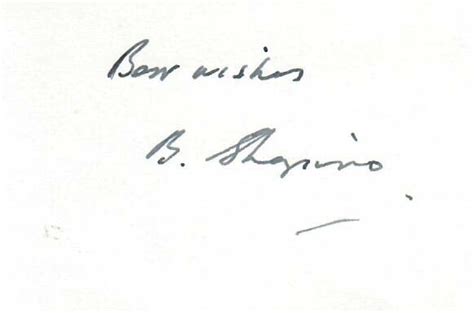 Best wishes
B. Shapiro